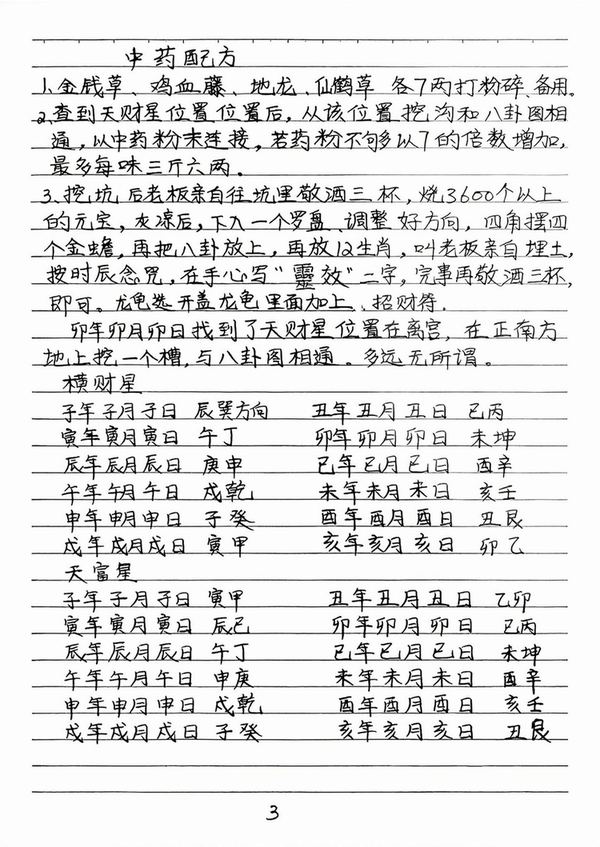 中药配方
1、金钱草、鸡血藤、地龙、仙鹤草 各7两打粉碎、备用。
2、查到天财星位置位置后，从该位置挖沟和八卦图相
通，以中药粉末连接，若药粉不够多以7的倍数增加，
最多每味三斤六两。
3、挖坑后老板亲自往坑里敬酒三杯，烧3600个以上
的元宝，灰凉后，下入一个罗盘、调整好方向，四角摆四
个金蟾，再把八卦放上，再放12生肖，叫老板亲自埋土，
按时辰念咒，在手心写“靈效”二字，完事再敬酒三杯，
即可。龙龟选开盖龙龟里面加上、招财符.
卯年卯月卯日找到了天财星位置在离宫，在正南方
地上挖一个槽，与八卦图相通。多远无所谓。
横财星
子年子月子日 辰巽方向 丑年丑月丑日 巳丙
寅年寅月寅日 午丁 卯年卯月卯日 未坤
辰年辰月辰日 庚申 巳年巳月巳日 酉辛
午年午月午日 戌乾 未年未月未日 亥壬
申年申月申日 子癸 酉年酉月酉日 丑艮
戌年戌月戌日 寅甲 亥年亥月亥日 卯乙
天富星
子年子月子日 寅甲 丑年丑月丑日 乙卯
寅年寅月寅日 辰巳 卯年卯月卯日 巳丙
辰年辰月辰日 午丁 巳年巳月巳日 未坤
午年午月午日 申庚 未年未月未日 酉辛
申年申月申日 戌乾 酉年酉月酉日 亥壬
戌年戌月戌日 子癸 亥年亥月亥日 丑艮
3